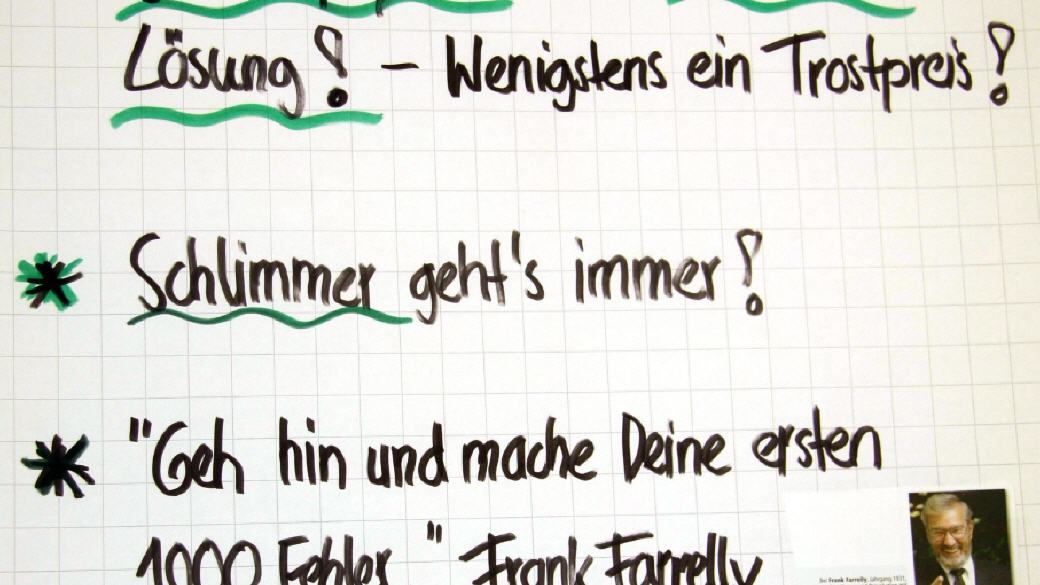 Lösung! – Wenigstens ein Trostpreis!
Schlimmer geht's immer!
"Geh hin und mache Deine ersten
1000 Fehler" Frank Farrelly
Frank Farrelly, Jahrgang 1931,